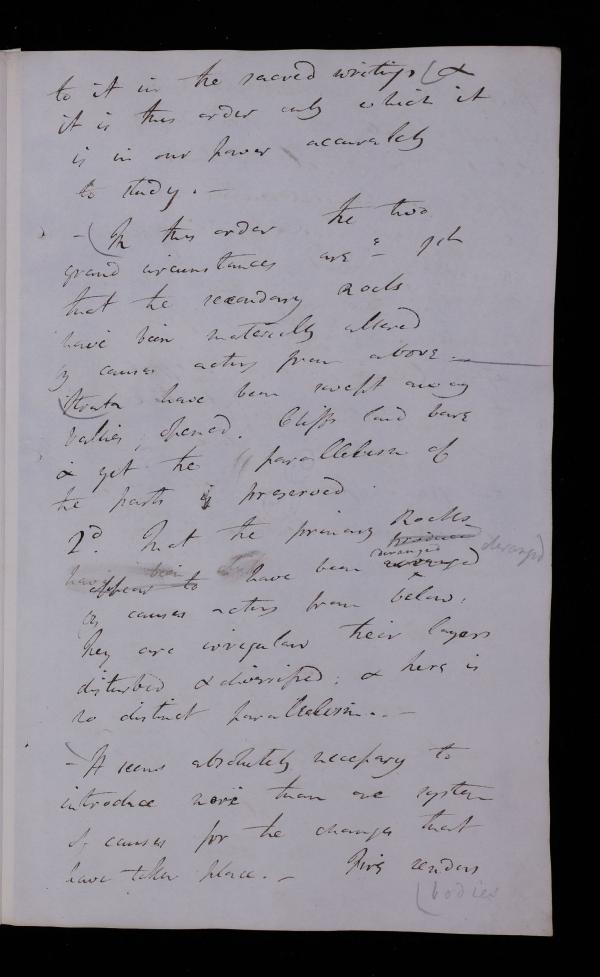 to it in the sacred writings (&
it is this order only which it
is in our power accurately
to study. —
— (In this order the two
grand circumstances are 1st
that the secondary Rocks
have been materially altered
by causes acting from above —
Strata have been swept away
Vallies opened. Cliffs laid bare
& yet the parallelism of
the parts is preserved
2d. That the primary Rocks
deranged deranged
appear to have been
by causes acting from below;
They are irregular their layers
disturbed & diversified; & there is
no distinct parallelism. —
— It seems absolutely necessary to
introduce more than one system
of causes for the changes that
have taken place. — Fire renders
(bodies